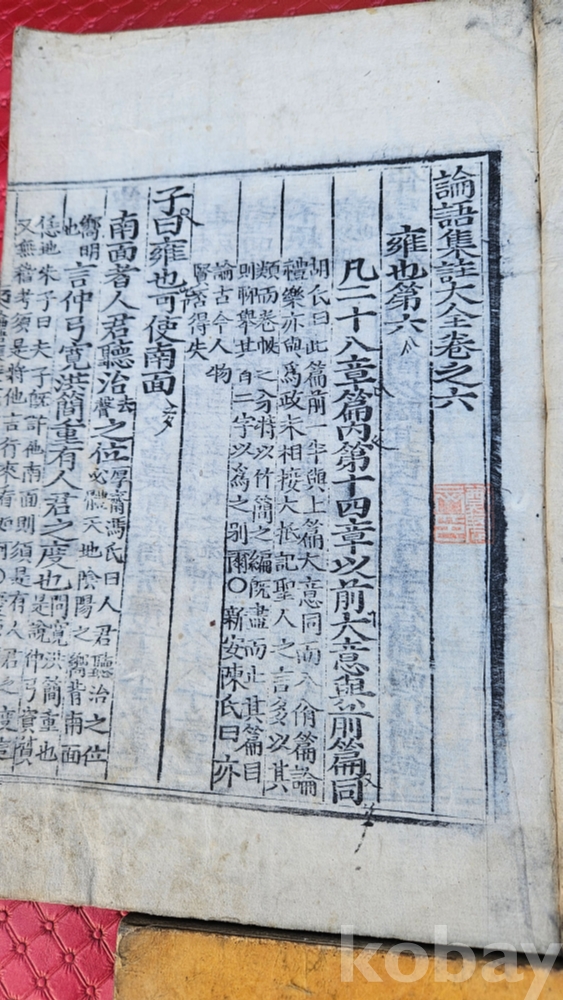 論語集註大全卷之六
雍也第六
凡二十八章篇內第十四章以前大意與前篇同
胡氏曰此篇前一半與上篇大意同而八佾篇論
禮樂亦與爲政末相接大抵記聖人之言多以其
類而卷帙之分特以竹簡之編旣盡而止其篇目
則聊舉其首二字以爲之別爾〇新安陳氏曰亦
論古今人物
賢否得失
子曰雍也可使南面
南面者人君聽治去聲之位厚齋馮氏曰人君聽治之位必體天地陰陽之嚮背南面
嚮明也言仲弓寬洪簡重有人君之度也問寬洪簡重也是說仲弓資質
恁地朱子曰夫子旣許他南面則須是有人君之度
又無稽考須是將他言行來看如何〇
kobay